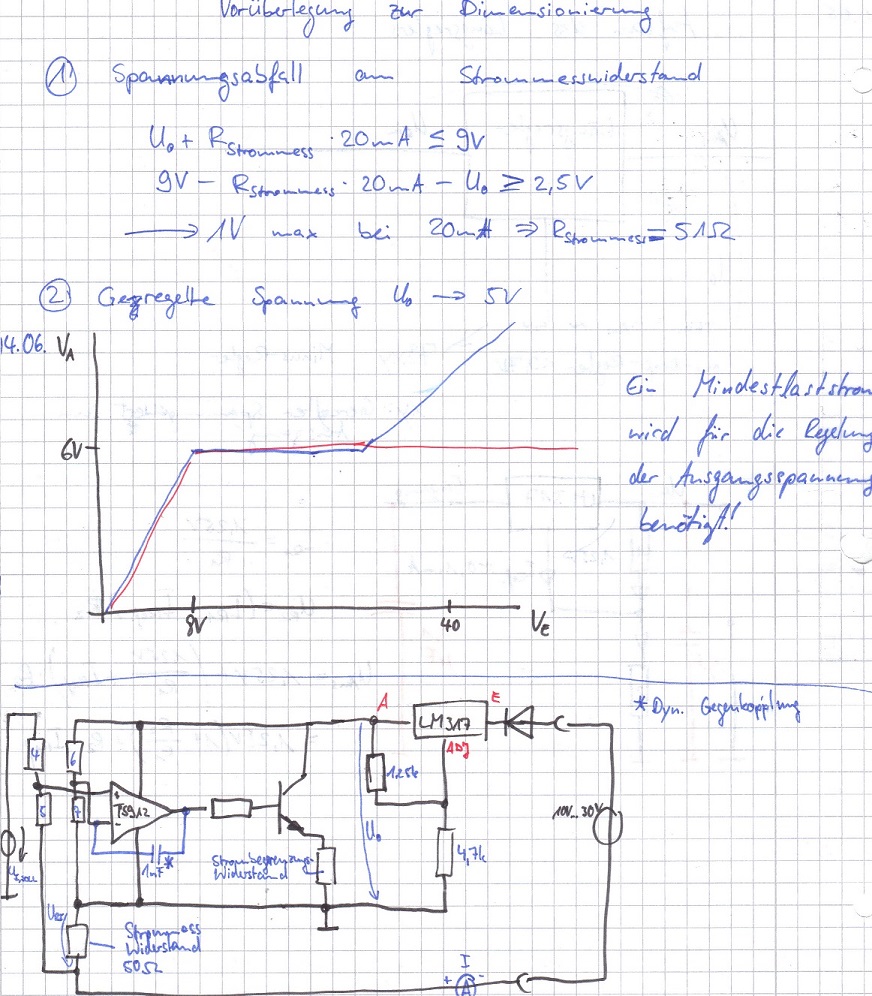 Vorüberlegung zur Dimensionierung
① Spannungsabfall am Strommesswiderstand
U₀ + R_Strommess · 20mA ≤ 9V
9V − R_Strommess · 20mA − U₀ ≥ 2,5V
→ 1V max bei 20mA ⇒ R_Strommess = 51Ω
② Geregelte Spannung U₀ → 5V
14.06. V_A
6V
8V
40
V_E
Ein Mindestlaststrom
wird für die Regelung
der Ausgangsspannung
benötigt!
*Dyn. Gegenkopplung
A
LM317
E
ADJ
4
6
5
7
+
-
TS912
1nF*
1,25k
U₀
4,7k
10V...30V
Strombegrenzungs-
Widerstand
Strommess
Widerstand
50Ω
I
+
A
-